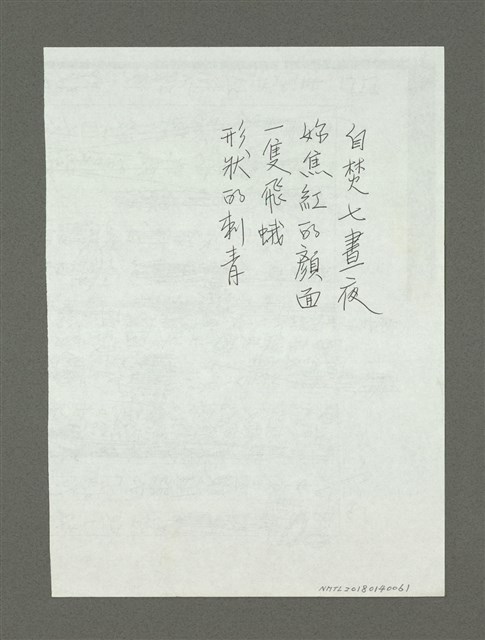 自焚七晝夜
妳焦紅的顏面
一隻飛蛾
形狀的刺青
NMTL20180140061